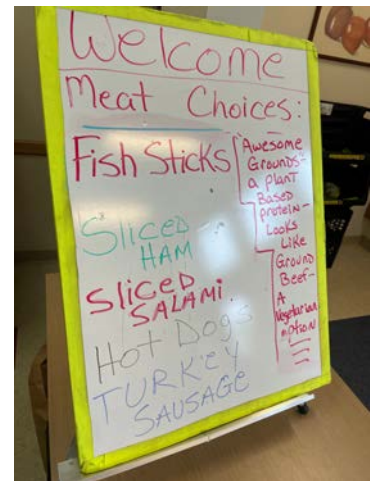 Welcome
Meat Choices:
Fish Sticks
Sliced
HAM
Sliced
SALAMi.
Hot Dogs
TURKEY
SAUSAGE
Awesome
Grounds-
a plant
Based
protein-
Looks
Like
Ground
Beef-
A
Vegetarian
option